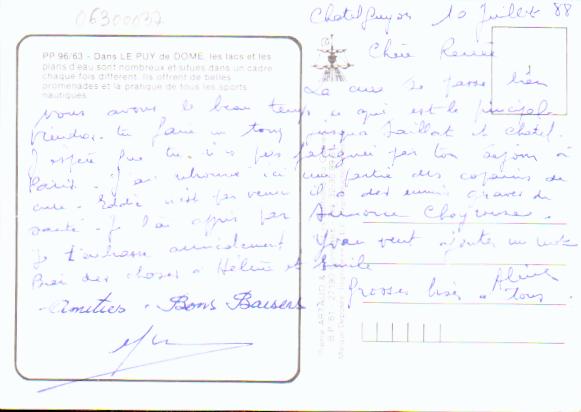 06300037
Chatelguyon 10 Juillet 88
Chère Renée
PP 96/63 - Dans LE PUY de DOME, les lacs et les
plans d'eau sont nombreux et situés dans un cadre
chaque fois différent. Ils offrent de belles
promenades et la pratique de tous les sports
nautiques.
La cure se passe bien
nous avons le beau temps, ce qui est le principal.
Viendras-tu faire un tour jusqu'à Chatel.
J'espère que tu n'es pas fatiguée par ton séjour à
Paris. J'ai retrouvé ici une partie des copains de
cure. Eddie n'est pas venu il a des ennuis graves de
santé. Je l'ai appris par Simone
Je t'embrasse amicalement Yvan veut ajouter un mot
Bien des choses à Hélène et Emile
Aline
- Amitiés - Bons Baisers
Grosses bises à tous.